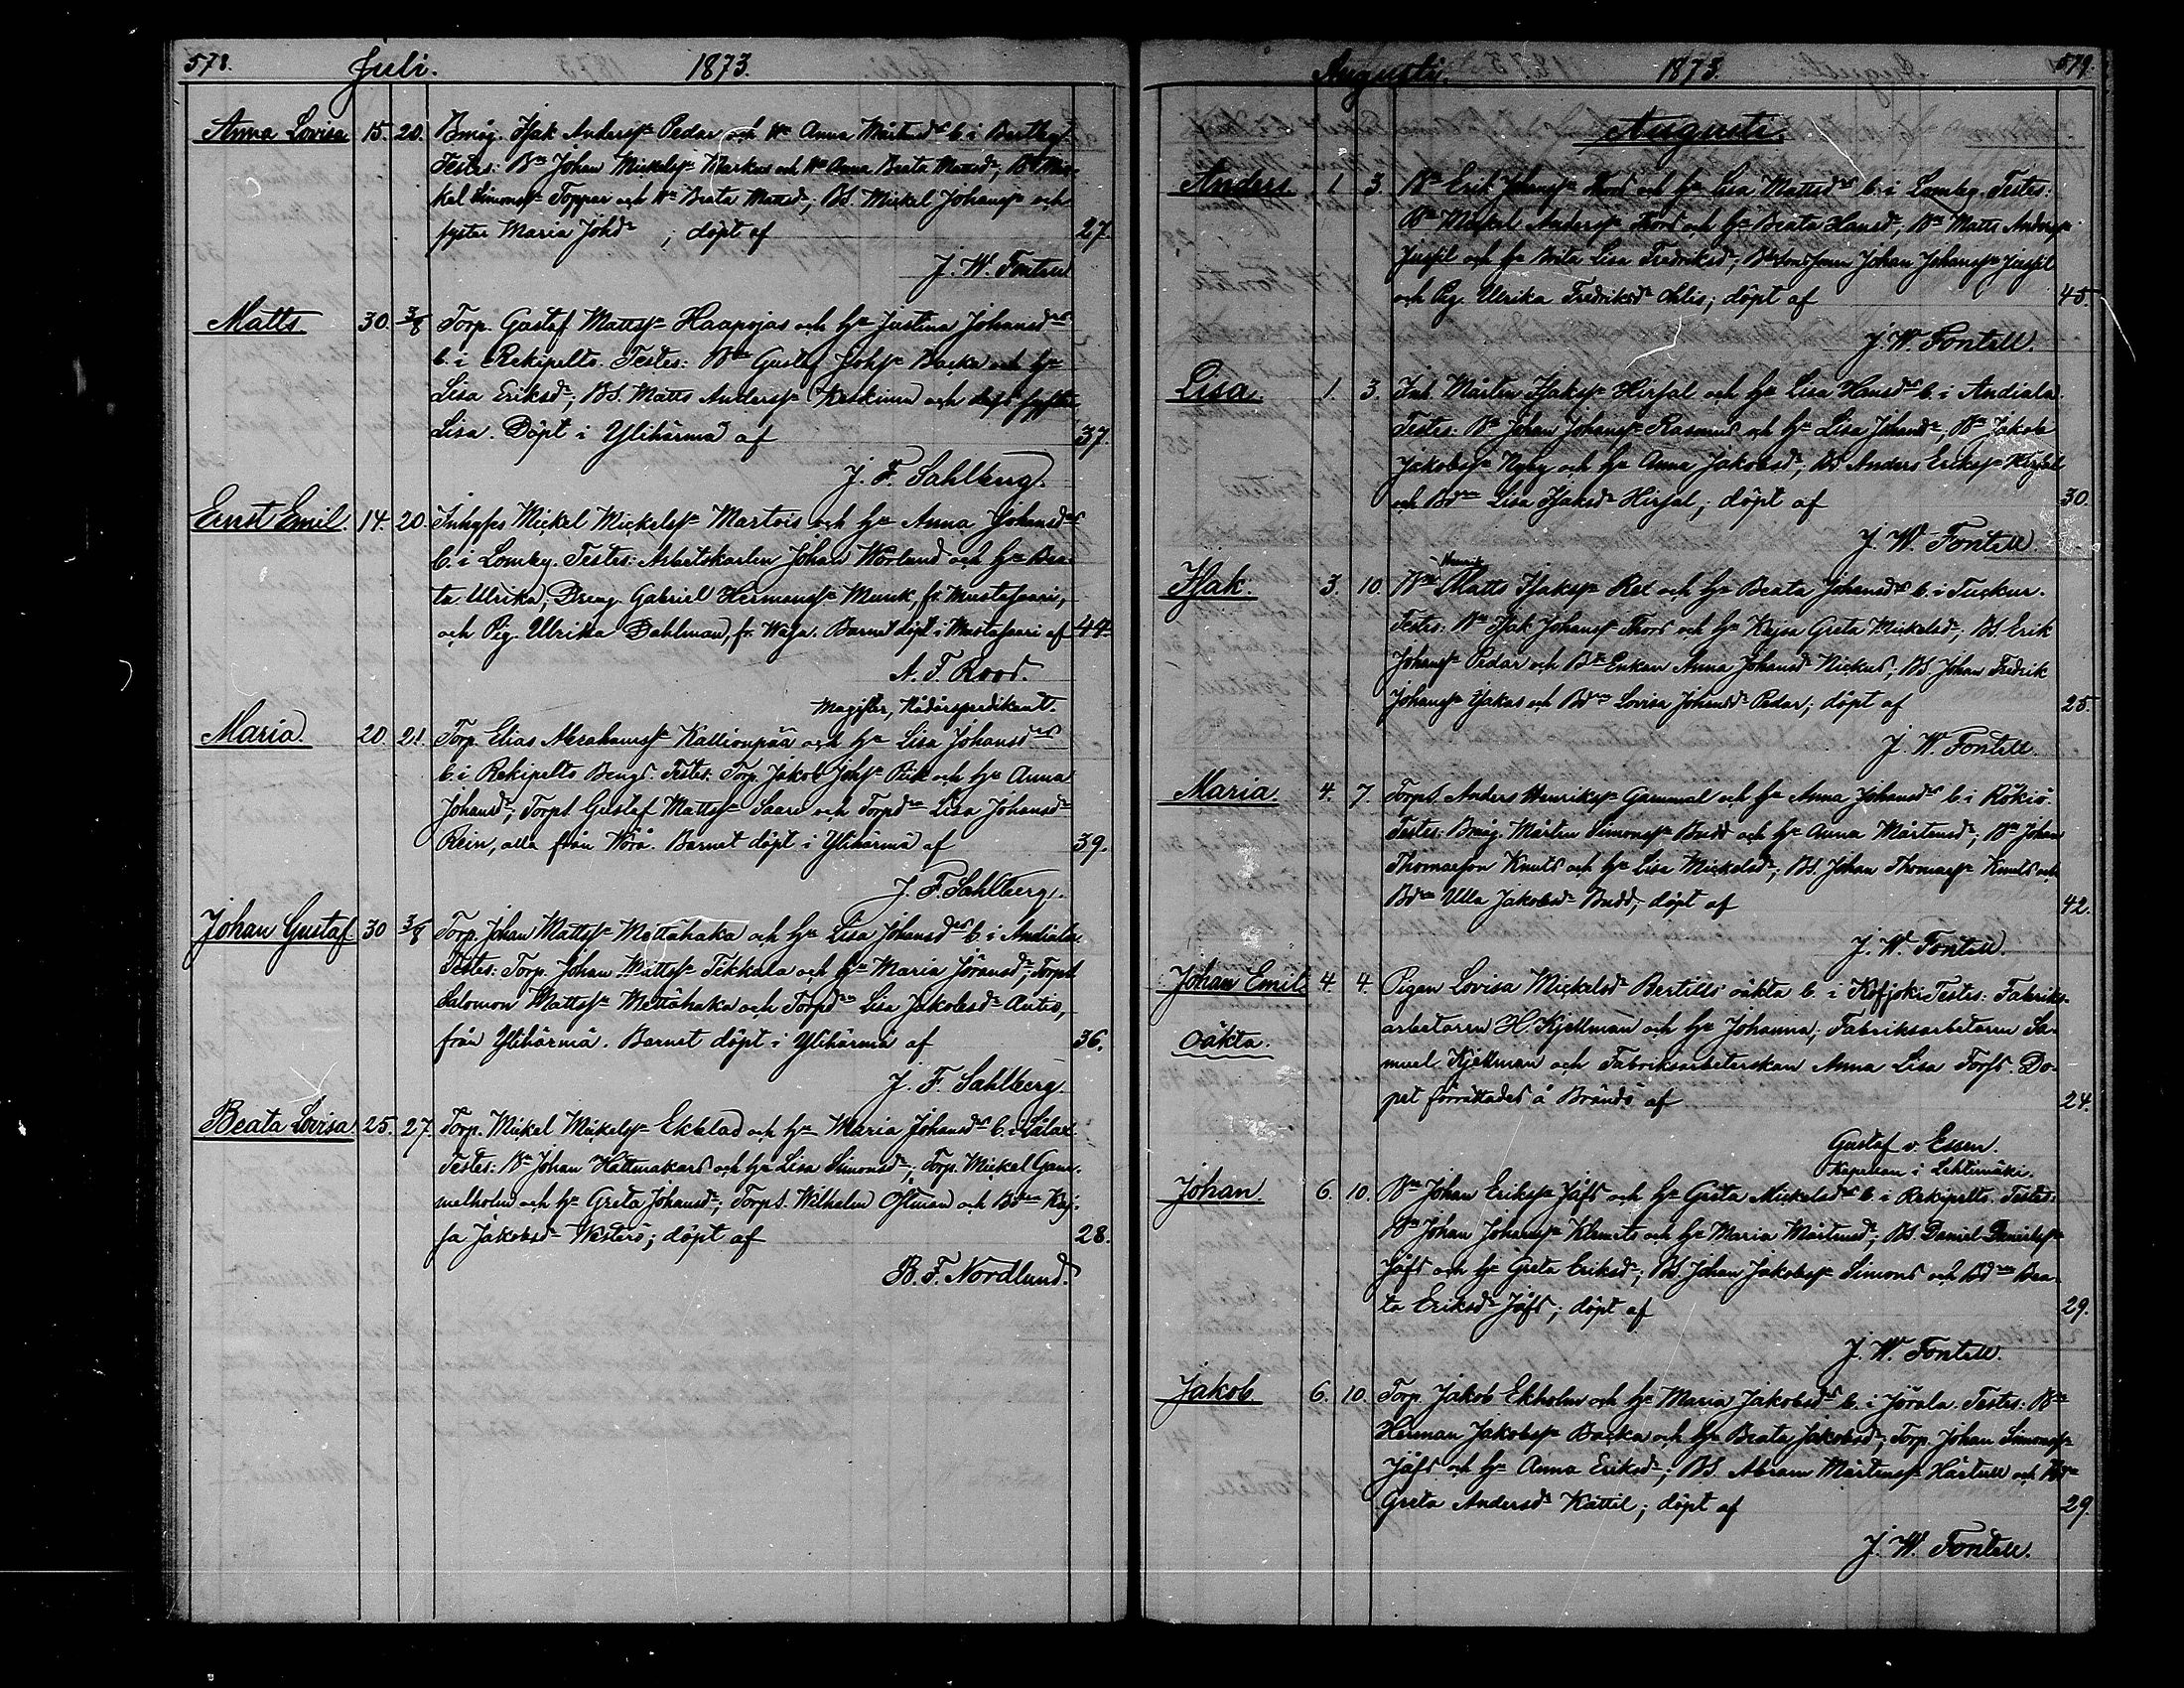 578. Juli. 1873.
Anna Lovisa 15. 20. Bmåg. Isak Anderss Pedar och H Anna Mårtensd b. i Bertby.
Testes: B Johan Mickelss Markus och H Anna Beata Mattsd; B Mic-
kel Simonss Toppar och H Beata Mattsd; BS. Mickel Johanss och
syster Maria Johd ; döpt af 27.
J. W. Fontell
Matts. 30. 3/8 Torp. Gustaf Mattss Haapojas och H Justina Johansd
b. i Rekipelto. Testes: B Gustaf Johss Backa och H
Lisa Eriksd; BS. Matts Anderss Keskinen och dess syster
Lisa. Döpt i Ylihärmä af 37.
J. F. Sahlberg.
Ernst Emil. 14. 20. Inhyses Mickel Mickelss Martois och H Anna Johansd
b. i Lomby. Testes: Arbetskarlen Johan Worlund och H Bea-
ta Ulrika; Dreng Gabriel Hermanss Munk, fr. Mustasaari,
och Pig. Ulrika Dahlman, fr. Wasa. Barnet döpt i Mustasaari af 44.
A. F. Roos.
Magister, Nådårspredikant.
Maria. 20. 21. Torp. Elias Abrahamss Kallionpää och H Lisa Johansd
b. i Rekipelto Bengs. Testes: Torp. Jakob Johss och H Anna
Johansd; Torps. Gustaf Mattss Saari och Torpd Lisa Johansd
Rein, alla från Wörå. Barnet döpt i Ylihärmä af 39.
J. F. Sahlberg.
Johan Gustaf. 30 3/8 Torp. Johan Mattss Mettähaka och H Lisa Johansd b. i Andiala.
Testes: Torp. Johan Mattss Tikkala och H Maria Jöransd; Torps.
Salomon Mattss Mettähaka och Torpd Lisa Jakobsd Autio,
från Ylihärmä. Barnet döpt i Ylihärmä af 36.
J. F. Sahlberg.
Beata Lovisa 25. 27. Torp. Mickel Mickelss Ekblad och H Maria Johansd b. i Lålax.
Testes: B Johan Hattmakars och H Lisa Simonsd; Torp. Mickel Gam-
melholm och H Greta Johansd; Torps. Wilhelm Östman och Bd Kaj-
sa Jakobsd Westerö; döpt af 28.
B. F. Nordlund.
Augusti. 1873. 579.
Augusti.
Anders 1. 3. B Erik Johanss Thors och H Lisa Mattsd b. i Lomby. Testes:
B Mickel Anderss Thors och H Beata Hansd; B Matts Anderss
Jusfil och H Brita Lisa Fredriksd; Johan Johanss Jusfil
och Pig. Ulrika Fredriksd Ohlis; döpt af 45.
J. W. Fontell.
Lisa. 1. 3. Inh. Mårten Isakss Hirsal och H Lisa Hansd b. i Andiala.
Testes: B Johan Johanss Rasmus och H Lisa Johansd, B Jakob
Jakobss Nyby och H Anna Jakobsd; BS Anders Erikss
och Bd Lisa Isaksd Hirsal; döpt af 30.
J. W. Fontell.
Henrik
Isak. 3. 10. B Matts Isakss Rex och H Beata Johansd b. i Tuckur.
Testes: B Isak Johanss Thors och H Kajsa Greta Mickelsd; BS. Erik
Johanss Pedar och B Enkan Anna Johansd Nickus; BS. Johan Fredrik
Johanss Jakas och Bd Lovisa Johansd Pedar; döpt af 25.
J. W. Fontell.
Maria. 4. 7. Torps. Anders Henrikss Gammal och H Anna Johansd b. i Rökiö.
Testes: Bmåg. Mårten Simonss Budd och H Anna Mårtensd; B Johan
Thomasson Knuts och H Lisa Mickelsd; BS. Johan Thomass Knuts och
Bd Ulla Jakobsd Budd, döpt af 42.
J. W. Fontell.
Johan Emil 4. 4. Pigan Lovisa Mickelsd Bertills oäkta b. i Kosjoki Testes: Fabriks-
oäkta. arbetaren H. Kjellman och H Johanna; Fabriksarbetaren Sa-
muel Kjellman och Fabriksarbeterskan Anna Lisa Forss. Do-
pet förrättades å Brändö af 24.
Gustaf v. Essen.
Kapellan i Lehtimäki.
Johan. 6. 10. B Johan Erikss Jåfs och H Greta Mickelsd b. i Rekipelto. Testes:
B Johan Johanss Klemets och H Maria Mårtensd; BS. Daniel Danielss
Jåfs och H Greta Eriksd; BS. Johan Jakobss Simons och Bd Bea-
ta Eriksd Jåfs; döpt af 29.
J. W. Fontell.
Jakob. 6. 10. Torp. Jakob Ekholm och H Maria Jakobsd b. i Jörala. Testes: B
Herman Jakobss Backa och H Beata Jakobsd; Torp. Johan Simonss
Jåfs och H Anna Eriksd; BS. Abram Mårtenss Härtull och Bd
Greta Andersd Kattil; döpt af 29.
J. W. Fontell.